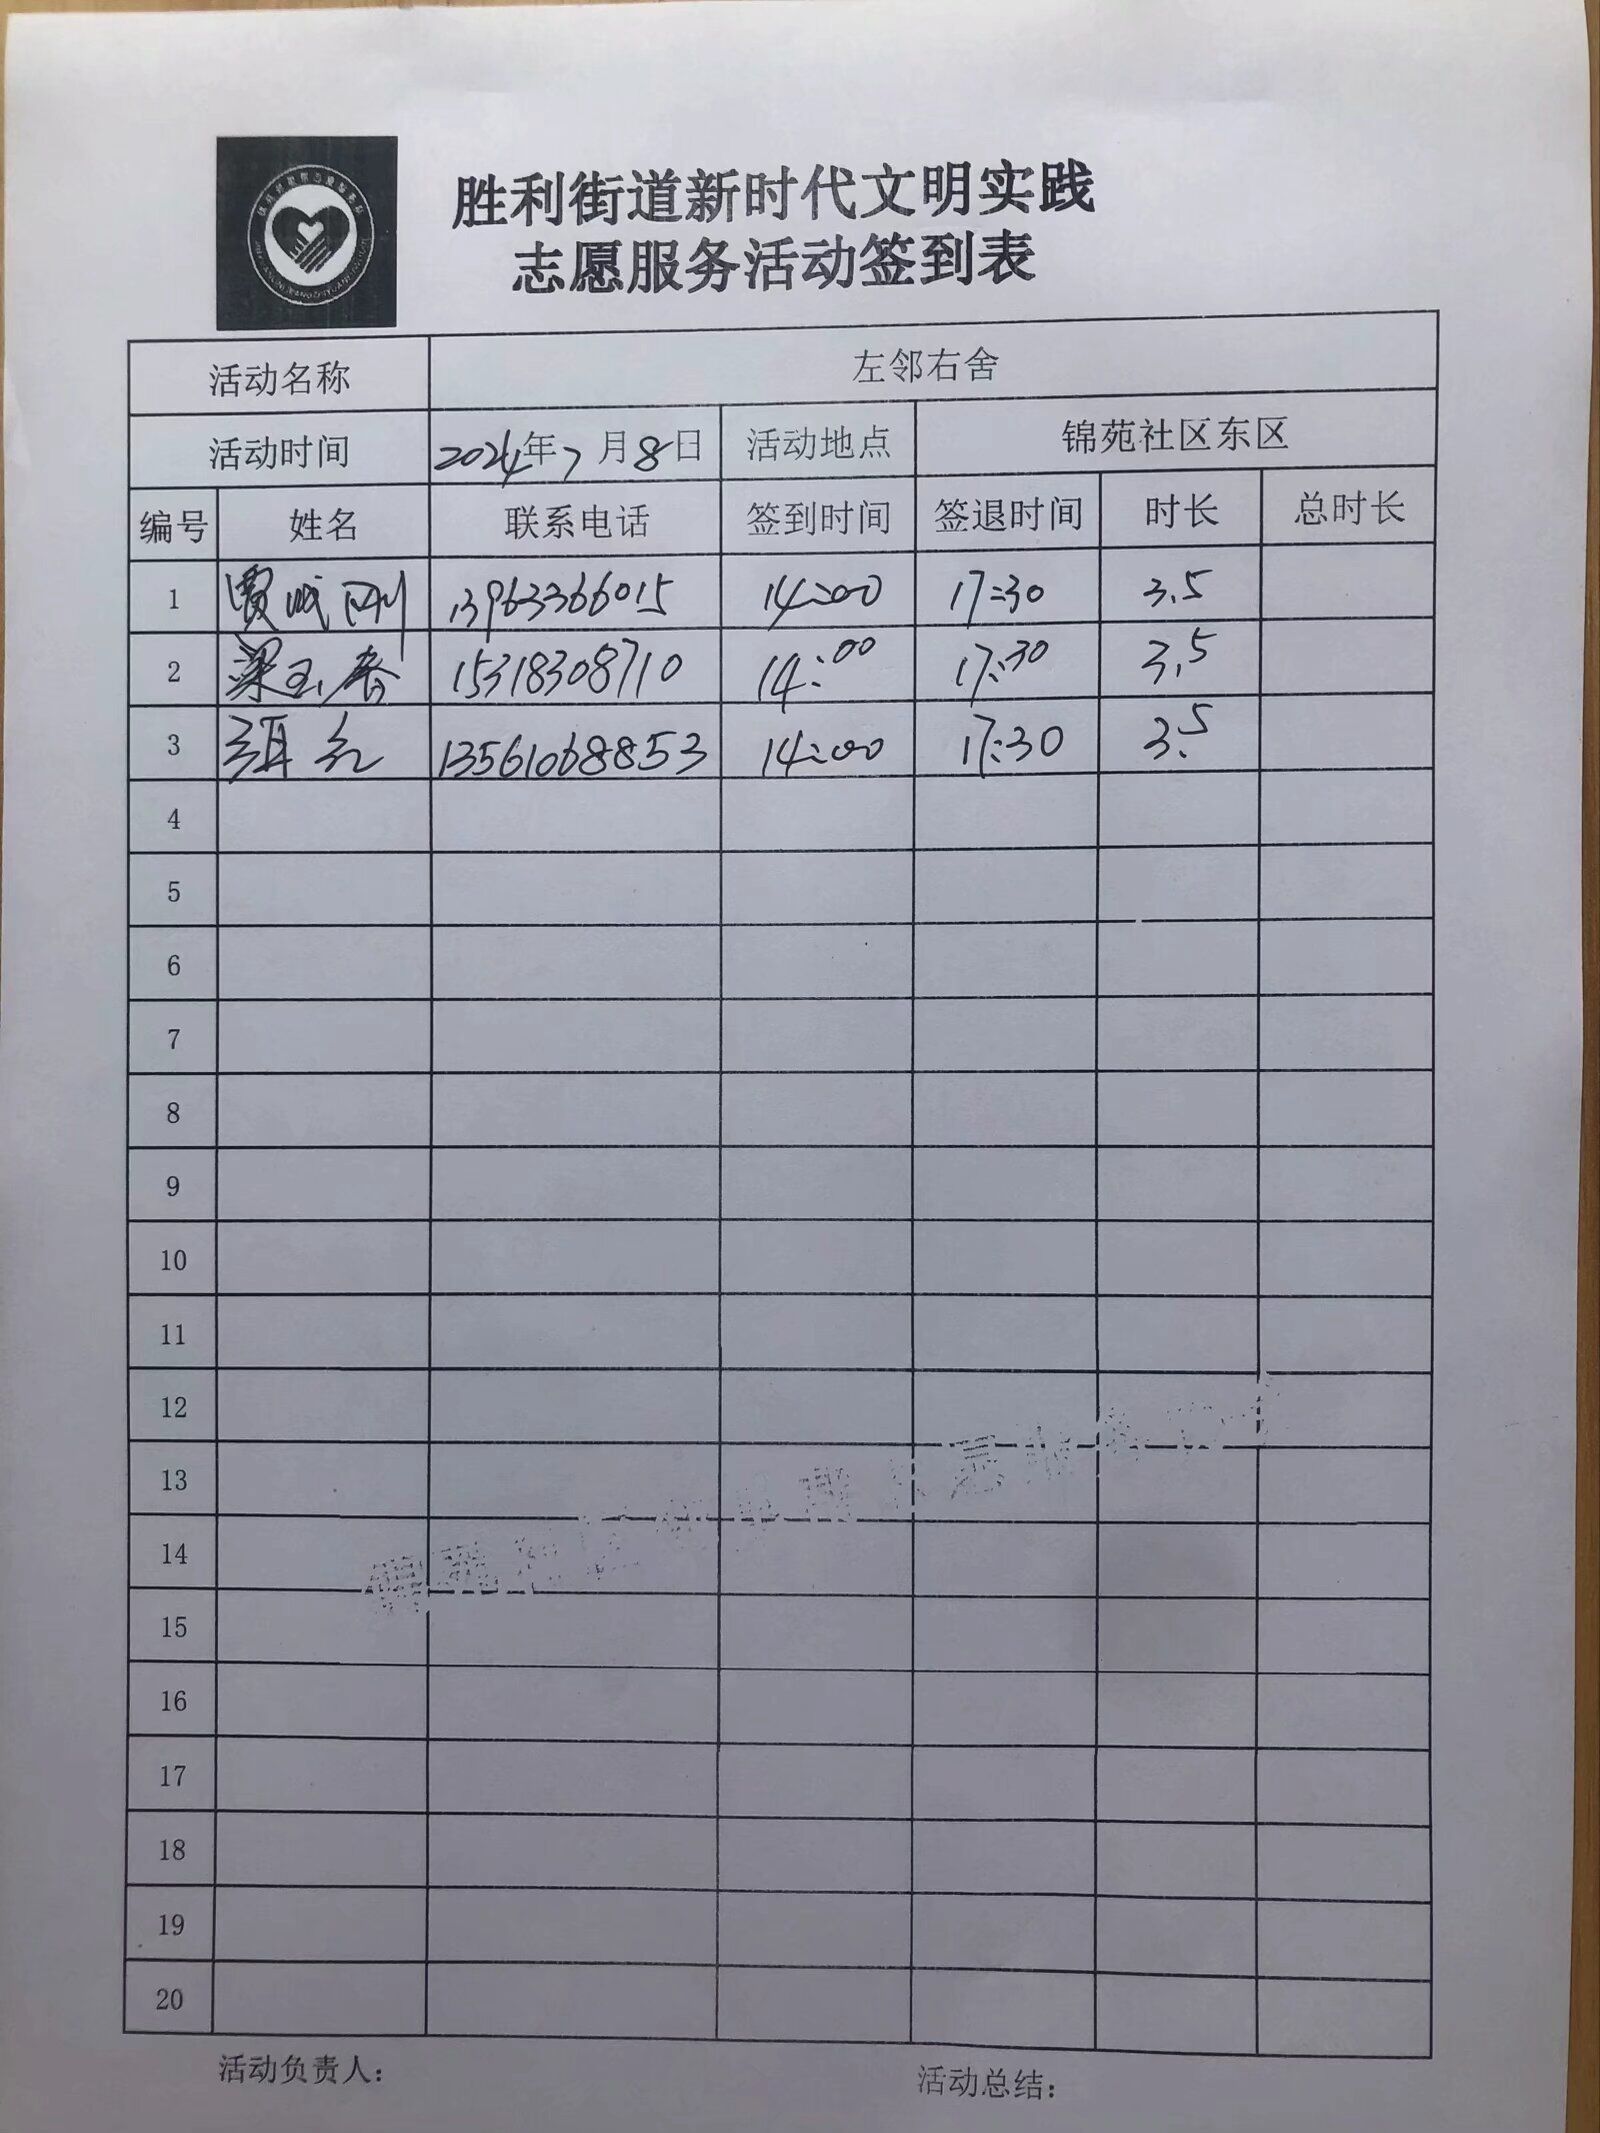 胜利街道新时代文明实践
志愿服务活动签到表
活动名称 左邻右舍
活动时间 2024年7月8日 活动地点 锦苑社区东区
编号 姓名 联系电话 签到时间 签退时间 时长 总时长
1 贾成刚 13963366015 14:00 17:30 3.5
2 梁玉春 15318308710 14:00 17:30 3.5
3 13561068853 14:00 17:30 3.5
4
5
6
7
8
9
10
11
12
13
14
15
16
17
18
19
20
活动负责人: 活动总结: